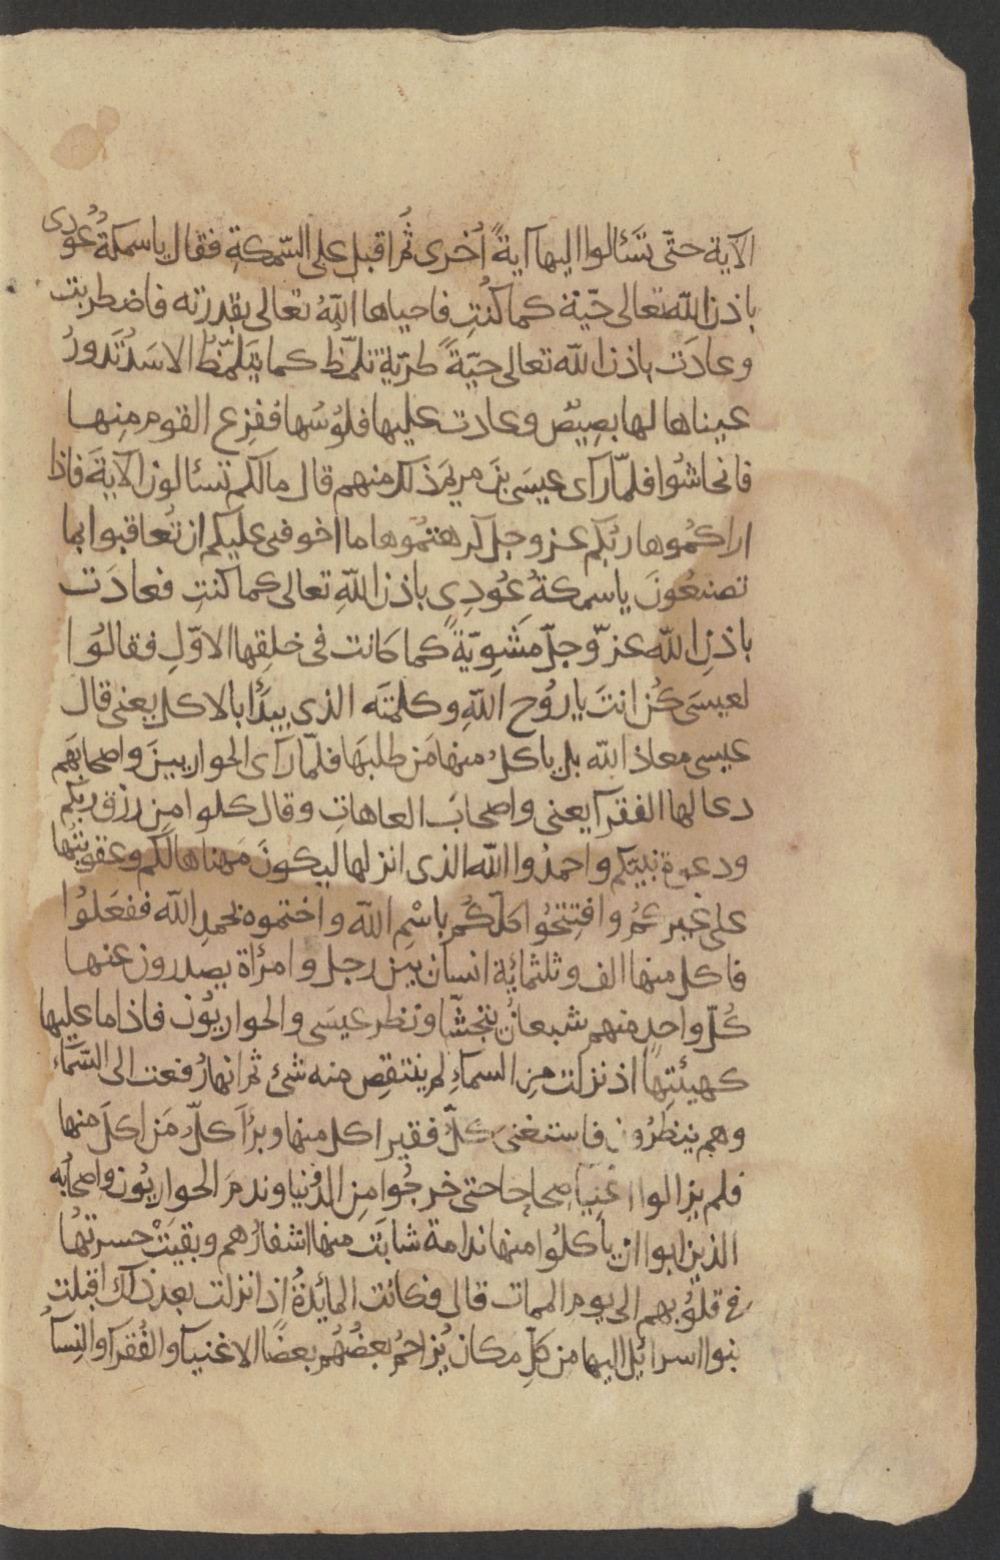 الآية حتّى تسَٔالوا اليها آيةً اُخرى ثُم اقبل على السّمكةِ فقال ياسمكةُ عُودى
باذن اللّه تعالى حيّة كما كنُتِ فاحياها اللّهُ تعالى بقدرته فاضطربت
وعادَت باذن اللّه تعالى حيّةً طريّة تلمّظ كما يَتلمّظُ الاسَدُ تَدورُ
عيناها لها بصِيصٌ وعادت عليها فلوُسُها ففزِع القوم مِنها
فانحاشُوا فلمّا رآى عيسَى بنَ مريمَ ذلك منهم قال مالكم تسئالون الآيةَ فاذا
اراكمُوها ربُكم عز وجل كرهتمُوها ما اخوفنى عليكم ان تُعاقبوا بما
تصنعُونَ ياسمكةُ عُودِى باذن اللّهِ تعالى كما كنتِ فعادَت
باذنِ اللّه عزّ وجلّ مَشوِيّةً كما كَانت فى خلقِها الاوّلِ فقالوُا
لعيسَى كُن انتَ يا روُح اللّهِ وكلمتَه الذى يبدَٔا بالاكل يعنى قال
عيسى معاذ اللّه بل ياكلُ منها مَن طلبَها فلمّا رآى الحواريينَ واصحابَهم
دعا لها الفقرآ يعنى واصحابَ العاهاتِ وقال كلوا مِن رزق ربكم
ودعوة نبيّكم واحمدُوا اللّه الذى انزلها ليكونَ مَهناها لكم وعقوبتُها
على غيركمُ وافتِتحُوا اكلّكُم باسْمِ اللّه واختموه بحمدِ اللّه ففعَلوُا
فاكل منها الف وثلثمائة انسان بين رجل وامرٔاة يصدرون عنها
كُلّ واحدٍ منهم شبعانُ يتجشّا ونظر عيسَى والحواريوُن فاذا ما عليها
كهيئتِها اذ نزلت مِن السمآءِ لم ينتقِص منه شئ ثم انهارُفعت الى السّمَآء
وهم ينظرُون فاستغنىَ كلُّ فقير اكل منها وبرٔاَ كلُّ مَن اكلَ منها
فلم يزالوا اغنِيآ صحاحا حتى خرجُوا مِن الدُنيا وندمَ الحواريُون واصحابُه
الذين ابوا ان ياكلوُا منها ندامة شابَت منها اشفارُهم وبقيَتْ حسرتهُا
فى قلوُبهم الى يوم الممات قال فكانت المائدةُ اذا نزلت بعد ذلك اقبلت
بنوا اسرائيل اليها من كلّ مكان يُزاحمُ بعضُهُم بعضًا الاغنيآ والفُقرآ والنسآ